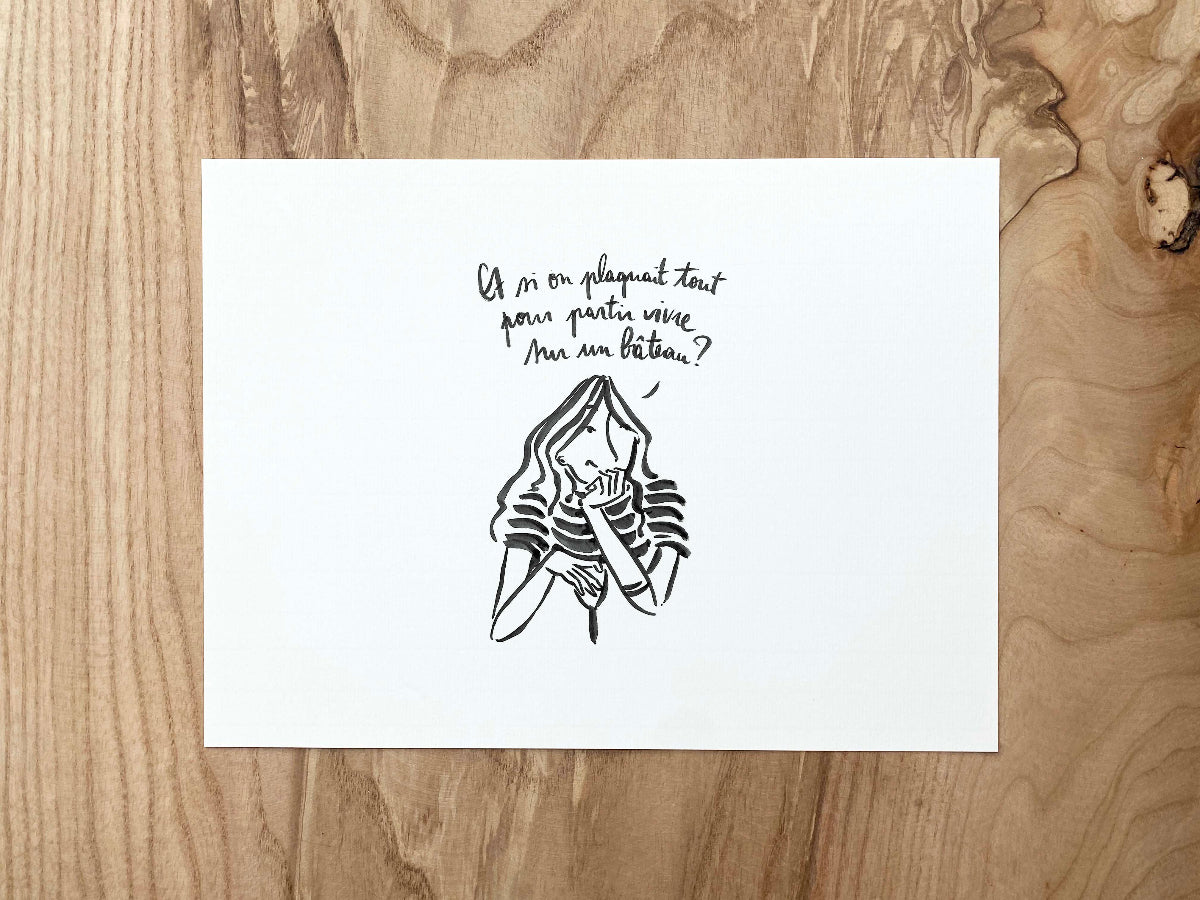 Et si on plaquait tout
pour partir vivre
sur un bâteau?